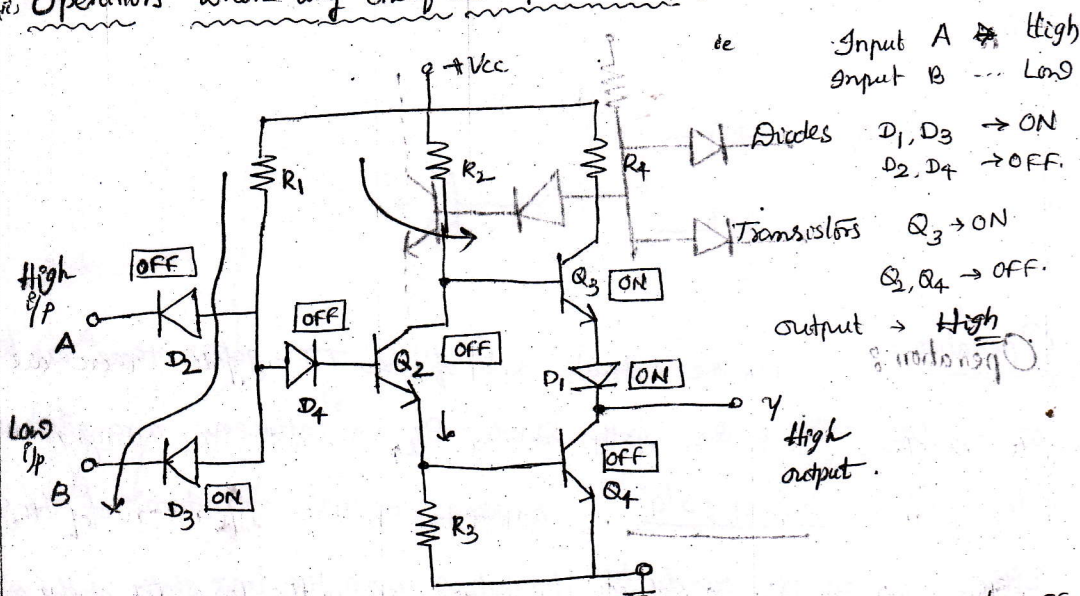 ii) Operations when any one of
+Vcc
ie Input A High
Input B ... Low
Diodes D1, D3 → ON
D2, D4 → OFF.
Transistors Q3 → ON
Q2, Q4 → OFF.
output → High
Operation :
R1
R2
R4
High
i/p
A
OFF
D2
OFF
D4
Q2
OFF
Q3 ON
D1 ON
Y
High
output.
Low
i/p
B
D3
ON
OFF
Q4
R3